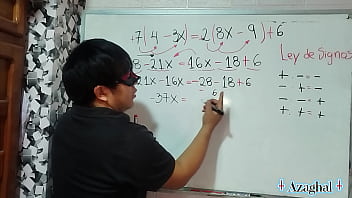 7(4 - 3x) = 2(8x - 9) + 6
8 - 21x = 16x - 18 + 6
21x - 16x = -28 - 18 + 6
-37x =
6
Ley de Signos
+ - = -
- + = -
- - = +
+ + = +
Azaghal